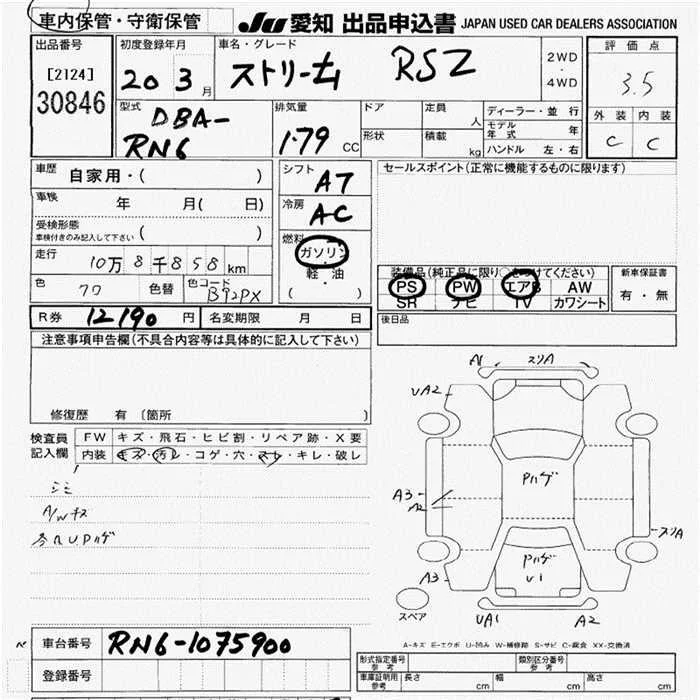 車内保管・守衛保管
JU 愛知 出品申込書 JAPAN USED CAR DEALERS ASSOCIATION
出品番号
[2124]
30846
初度登録年月
20 3月
車名・グレード
ストリーム RSZ
2WD
・
4WD
評価点
3.5
外装 内装
C C
型式
DBA-
RN6
排気量
1.79 CC
ドア
形状
定員 人
積載 kg
ディーラー・並行
モデル年式 年
ハンドル 左・右
車歴 自家用・( )
車検 年 月( 日)
受検形態
車検付きのみ記入して下さい ( )
走行 10万8千858km
色 クロ 色替 色コード B92PX
シフト
AT
冷房
AC
燃料
ガソリン
軽・油
( )
セールスポイント(正常に機能するものに限ります)
装備品(純正品に限り○をつけてください)
PS PW エアB AW
SR ナビ TV カワシート
新車保証書
有・無
R券 12190円 名変期限 月 日
後日品
注意事項申告欄(不具合内容等は具体的に記入して下さい)
修復歴 有 〔箇所 〕
検査員
記入欄
FW キズ・飛石・ヒビ割・リペア跡・X要
内装 キズ・汚レ・コゲ・穴・スレ・キレ・破レ
シミ
A/Wキズ
各RUPハゲ
A1 スリA
UA2
Pハゲ
A3
A2
スリA
Pハゲ
U1
A3
スペア
UA1 A2
A-キズ E-エクボ U-凹み W-補修跡 S-サビ C-腐食 XX-交換済
車台番号 RN6-1075900
登録番号
形式指定番号
参考
類別区分番号
参考
車庫証明用
参考
長さ cm 幅 cm 高さ cm